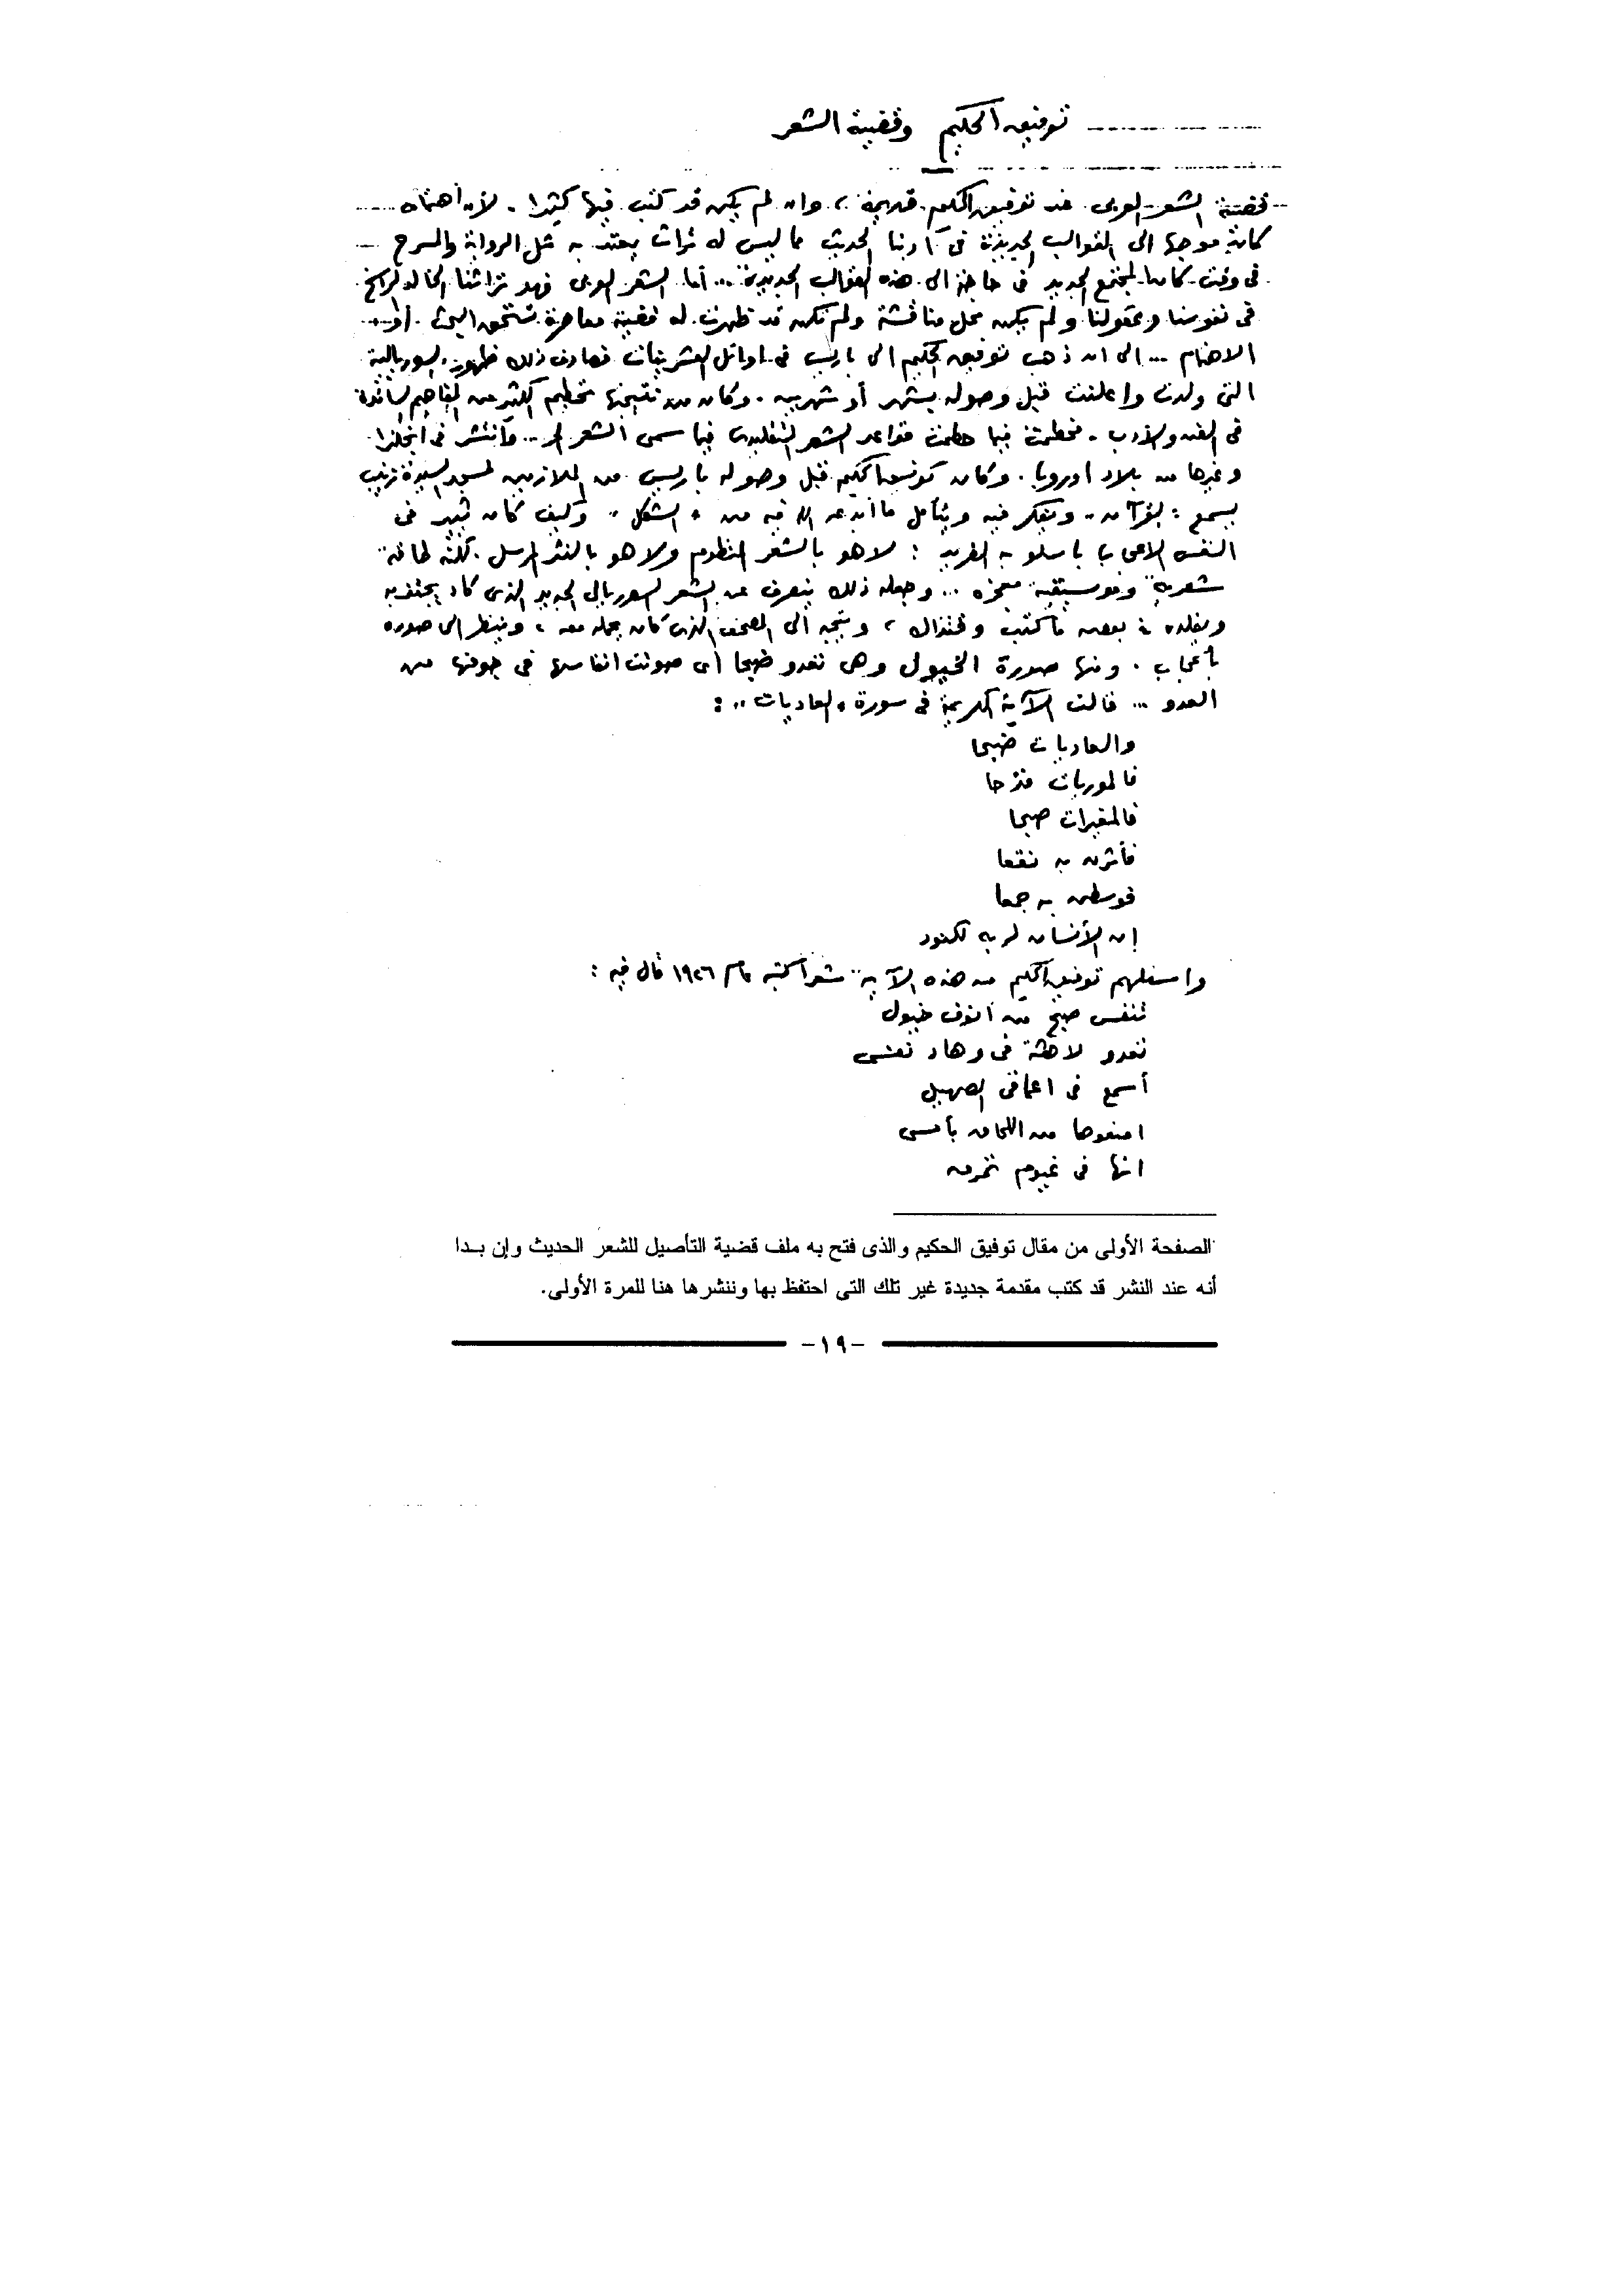 توفيق الحكيم وقضية الشعر
قضية الشعر العربى عند توفيق الحكيم قديمة ، وان لم يكن قد كتب فيها كثيرا . لأن أهتمامه
كان موجها الى القوالب الجديدة فى آدبنا الحديث مما ليس له تراث يعتد به مثل الرواية والمسرح
فى وقت كان المجتمع الجديد فى حاجة الى هذه القوالب الجديدة ... أما الشعر العربى فهو تراثنا الخالد الراسخ
فى نفوسنا وعقولنا ولم يكن محل مناقشة ولم تكن قد ظهرت له قضية معاصرة تستحق البحث أو
الاهتمام ... الى ان ذهب توفيق الحكيم الى باريس فى اوائل العشرينات فصادف ذلك ظهور السوريالية
التى ولدت واعلنت قبل وصوله بشهر أو شهرين . وكان من نتيجتها تحطيم الكثير من المفاهيم السائدة
فى الفن والأدب . فحطمت فيما حطمت قواعد الشعر التقليدى فيما سمى الشعر الحر ... وأنتشر فى انجلترا
وغيرها من بلاد اوروبا . وكان توفيق الحكيم قبل وصوله باريس من الملازمين لمسجد السيدة زينب
يسمع القرآن .. ويفكر فيه ويتأمل ما أبدعه الله فيه من " الشكل " وكيف كان يثير فى
النفس الاعجاب باسلوبه الفريد : لا هو بالشعر المنظوم ولا هو بالنثر المرسل . لكنه طاقة
شعرية وموسيقية معجزه ... وجعله ذلك ينصرف عن الشعر السوريالى الجديد الذى كاد يجتذبه
ويقلده فى بعض ما كتب وقتذاك ، ويتجه الى المصحف الذى كان يحمله معه ، وينظر الى صوره
بأعجاب . ومنها صورة الخيول وهى تعدو ضبحا أى صوت انفاسها فى جوفها من
العدو ... قالت الآية الكريمة فى سورة " العاديات " :
والعاديات ضبحا
فالموريات قدحا
فالمغيرات صبحا
فأثرن به نقعا
فوسطن به جمعا
إن الأنسان لربه لكنود
واستلهم توفيق الحكيم من هذه الآية شعرا كتبه عام ١٩٢٦ قال فيه :
تنفس صبح من أنوف خيول
تعدو لاهثة فى وهاد نفسى
أسمع فى اعماقى الصهيل
امنعوها من اللحاق بأمسى
انها فى غيوم تمرق
الصفحة الأولى من مقال توفيق الحكيم والذى فتح به ملف قضية التأصيل للشعر الحديث وإن بـدا
أنه عند النشر قد كتب مقدمة جديدة غير تلك التى احتفظ بها وننشرها هنا للمرة الأولى.
-١٩-